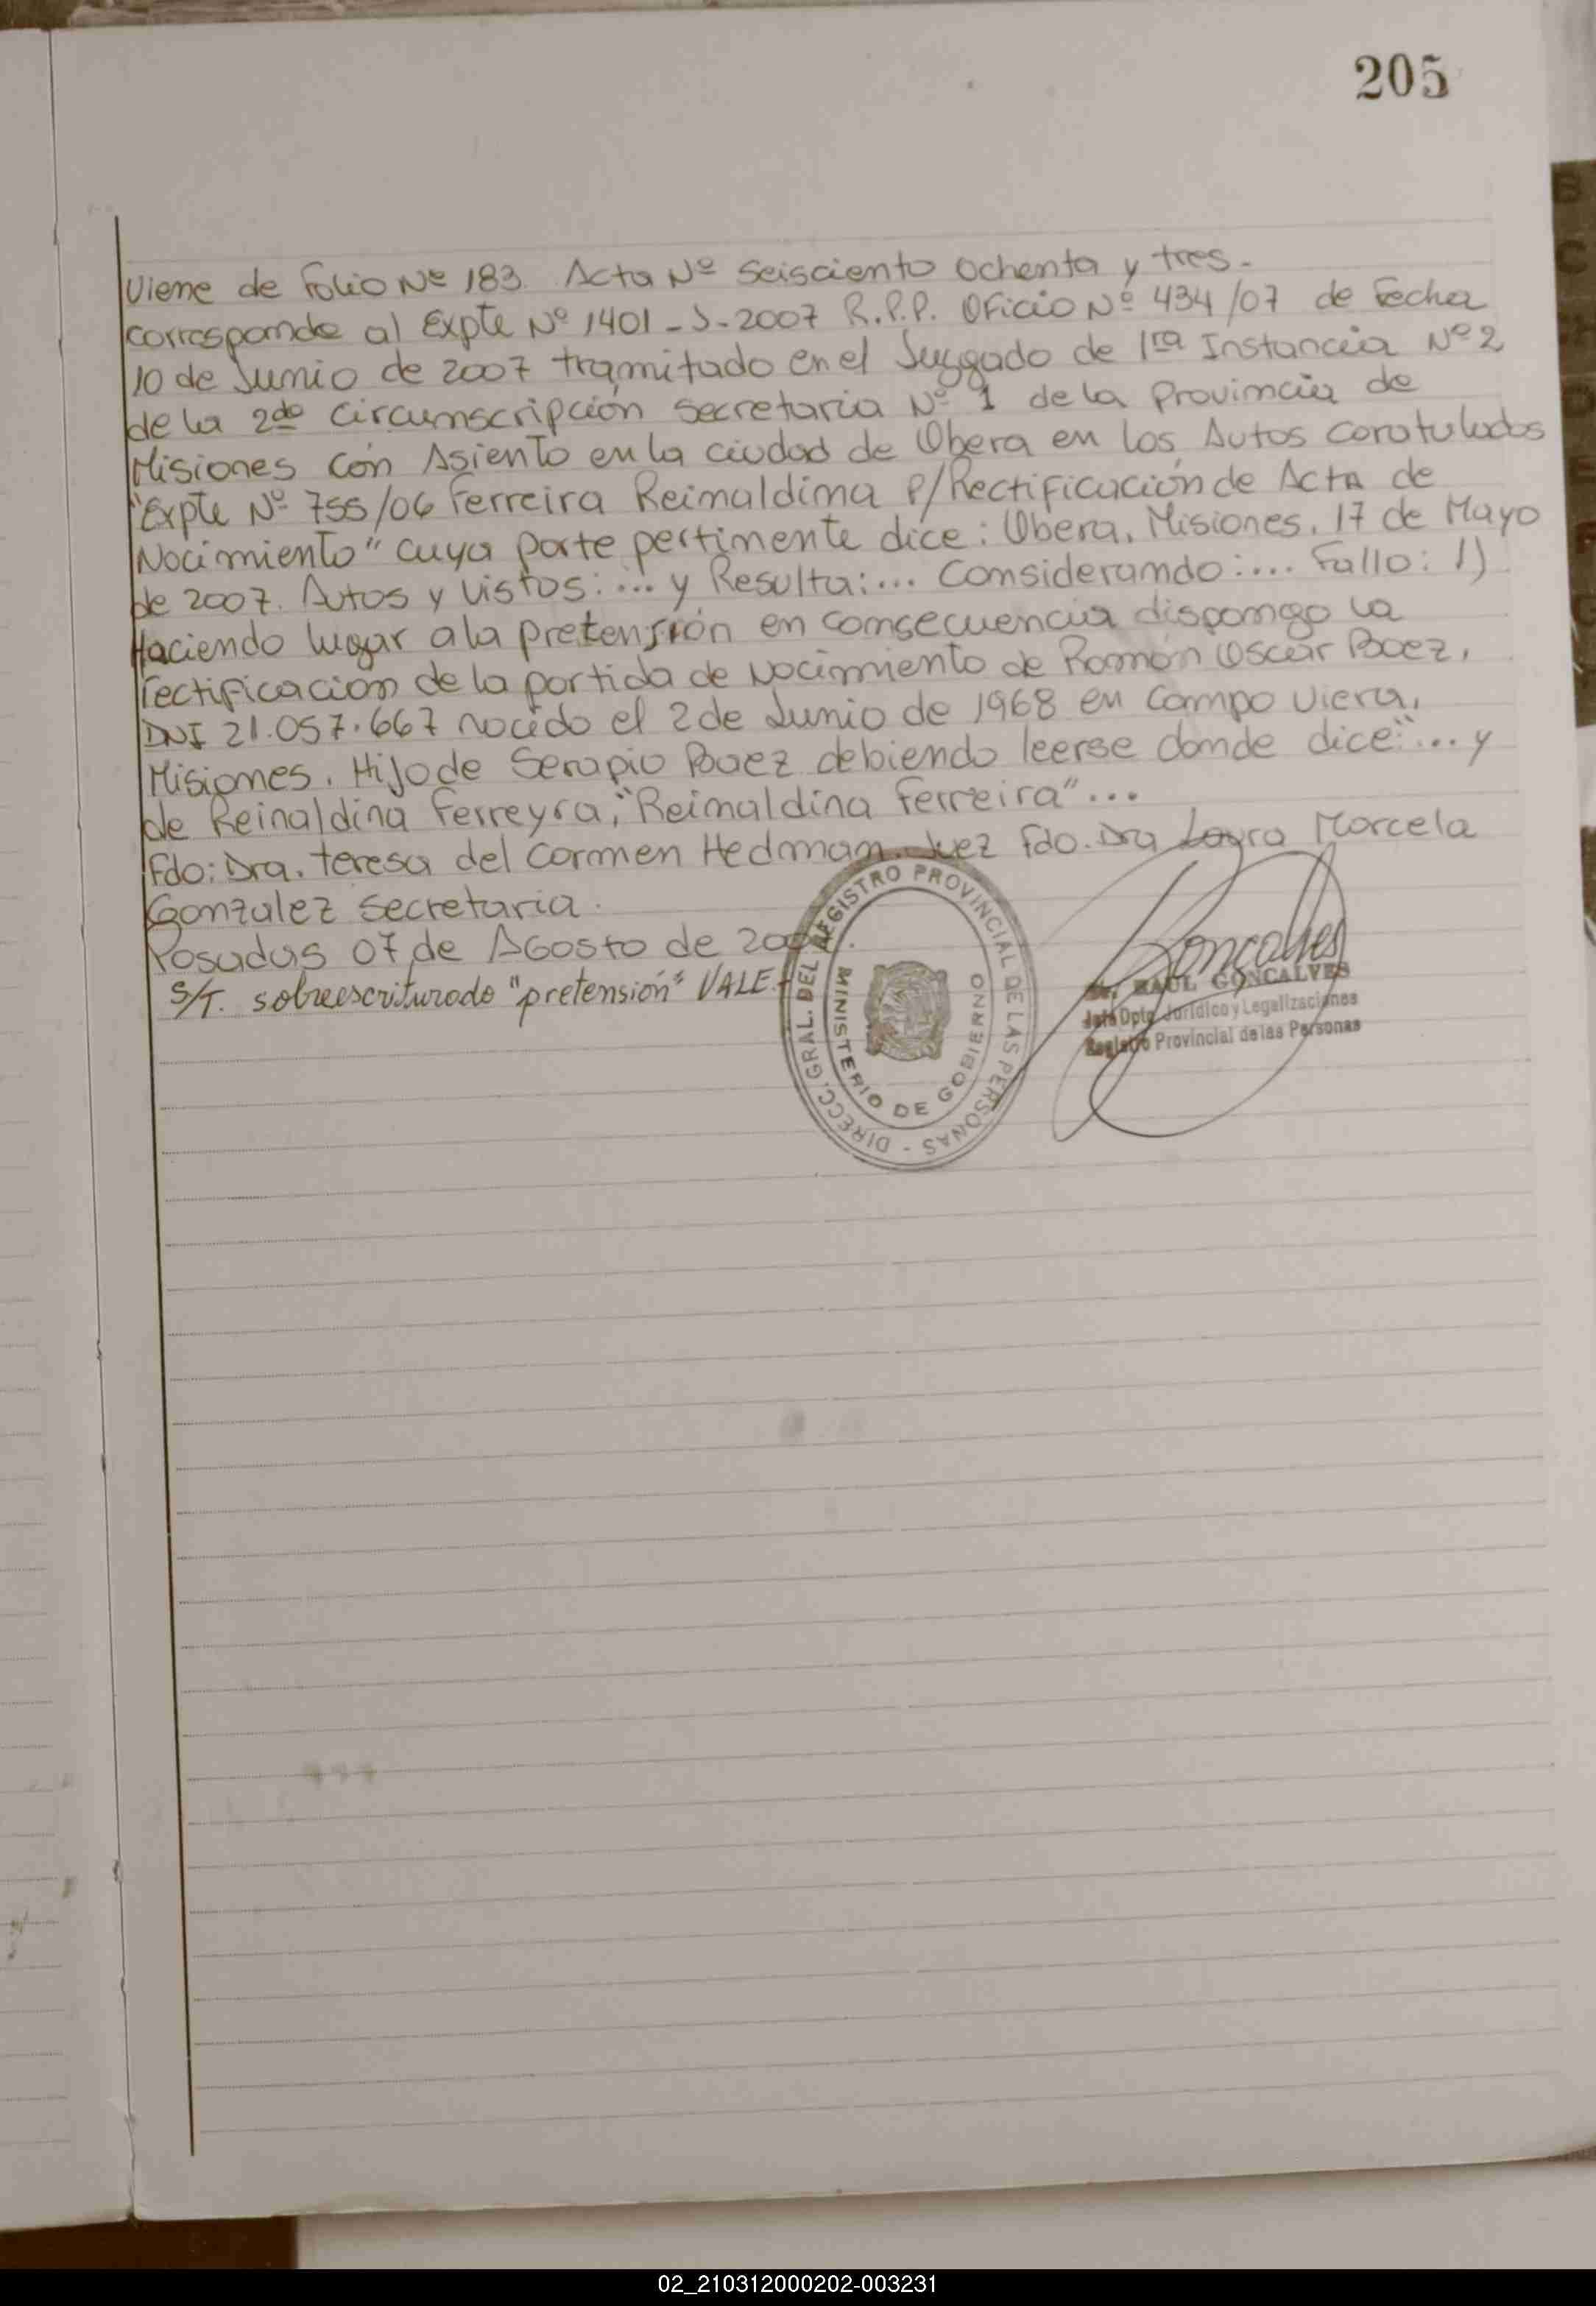 205
Viene de Folio Nº 183. Acta Nº Seisciento Ochenta y tres.
Corresponde al Expte Nº 1401-J-2007 R.P.P. Oficio Nº 434/07 de Fecha
10 de Junio de 2007 tramitado en el Juzgado de 1ra Instancia Nº 2
de la 2da Circunscripción Secretaria Nº 1 de la Provincia de
Misiones con Asiento en la ciudad de Obera en los Autos caratulados
"Expte Nº 755/06 Ferreira Reinaldina P/Rectificación de Acta de
Nacimiento" cuya parte pertinente dice: Obera, Misiones, 17 de Mayo
de 2007. Autos y Vistos:... y Resulta:... Considerando:... Fallo: 1)
Haciendo lugar a la pretensión en consecuencia dispongo la
rectificacion de la partida de Nacimiento de Ramón Oscar Baez,
DNI 21.057.667 nacido el 2 de Junio de 1968 en Campo Viera,
Misiones, Hijo de Serapio Baez debiendo leerse donde dice:"... y
de Reinaldina Ferreyra," "Reinaldina Ferreira"...
Fdo: Dra. Teresa del Carmen Hedman. Juez Fdo. Dra Laura Marcela
Gonzalez Secretaria.
Posadas 07 de Agosto de
S/T. sobreescriturado "pretensión" VALE.-
DIRECC. GRAL. DEL REGISTRO PROVINCIAL DE LAS PERSONAS -
MINISTERIO DE GOBIERNO
Goncalves
RAUL GONCALVES
Jefe Dpto. Jurídico y Legalizaciones
Registro Provincial de las Personas
02_210312000202-003231